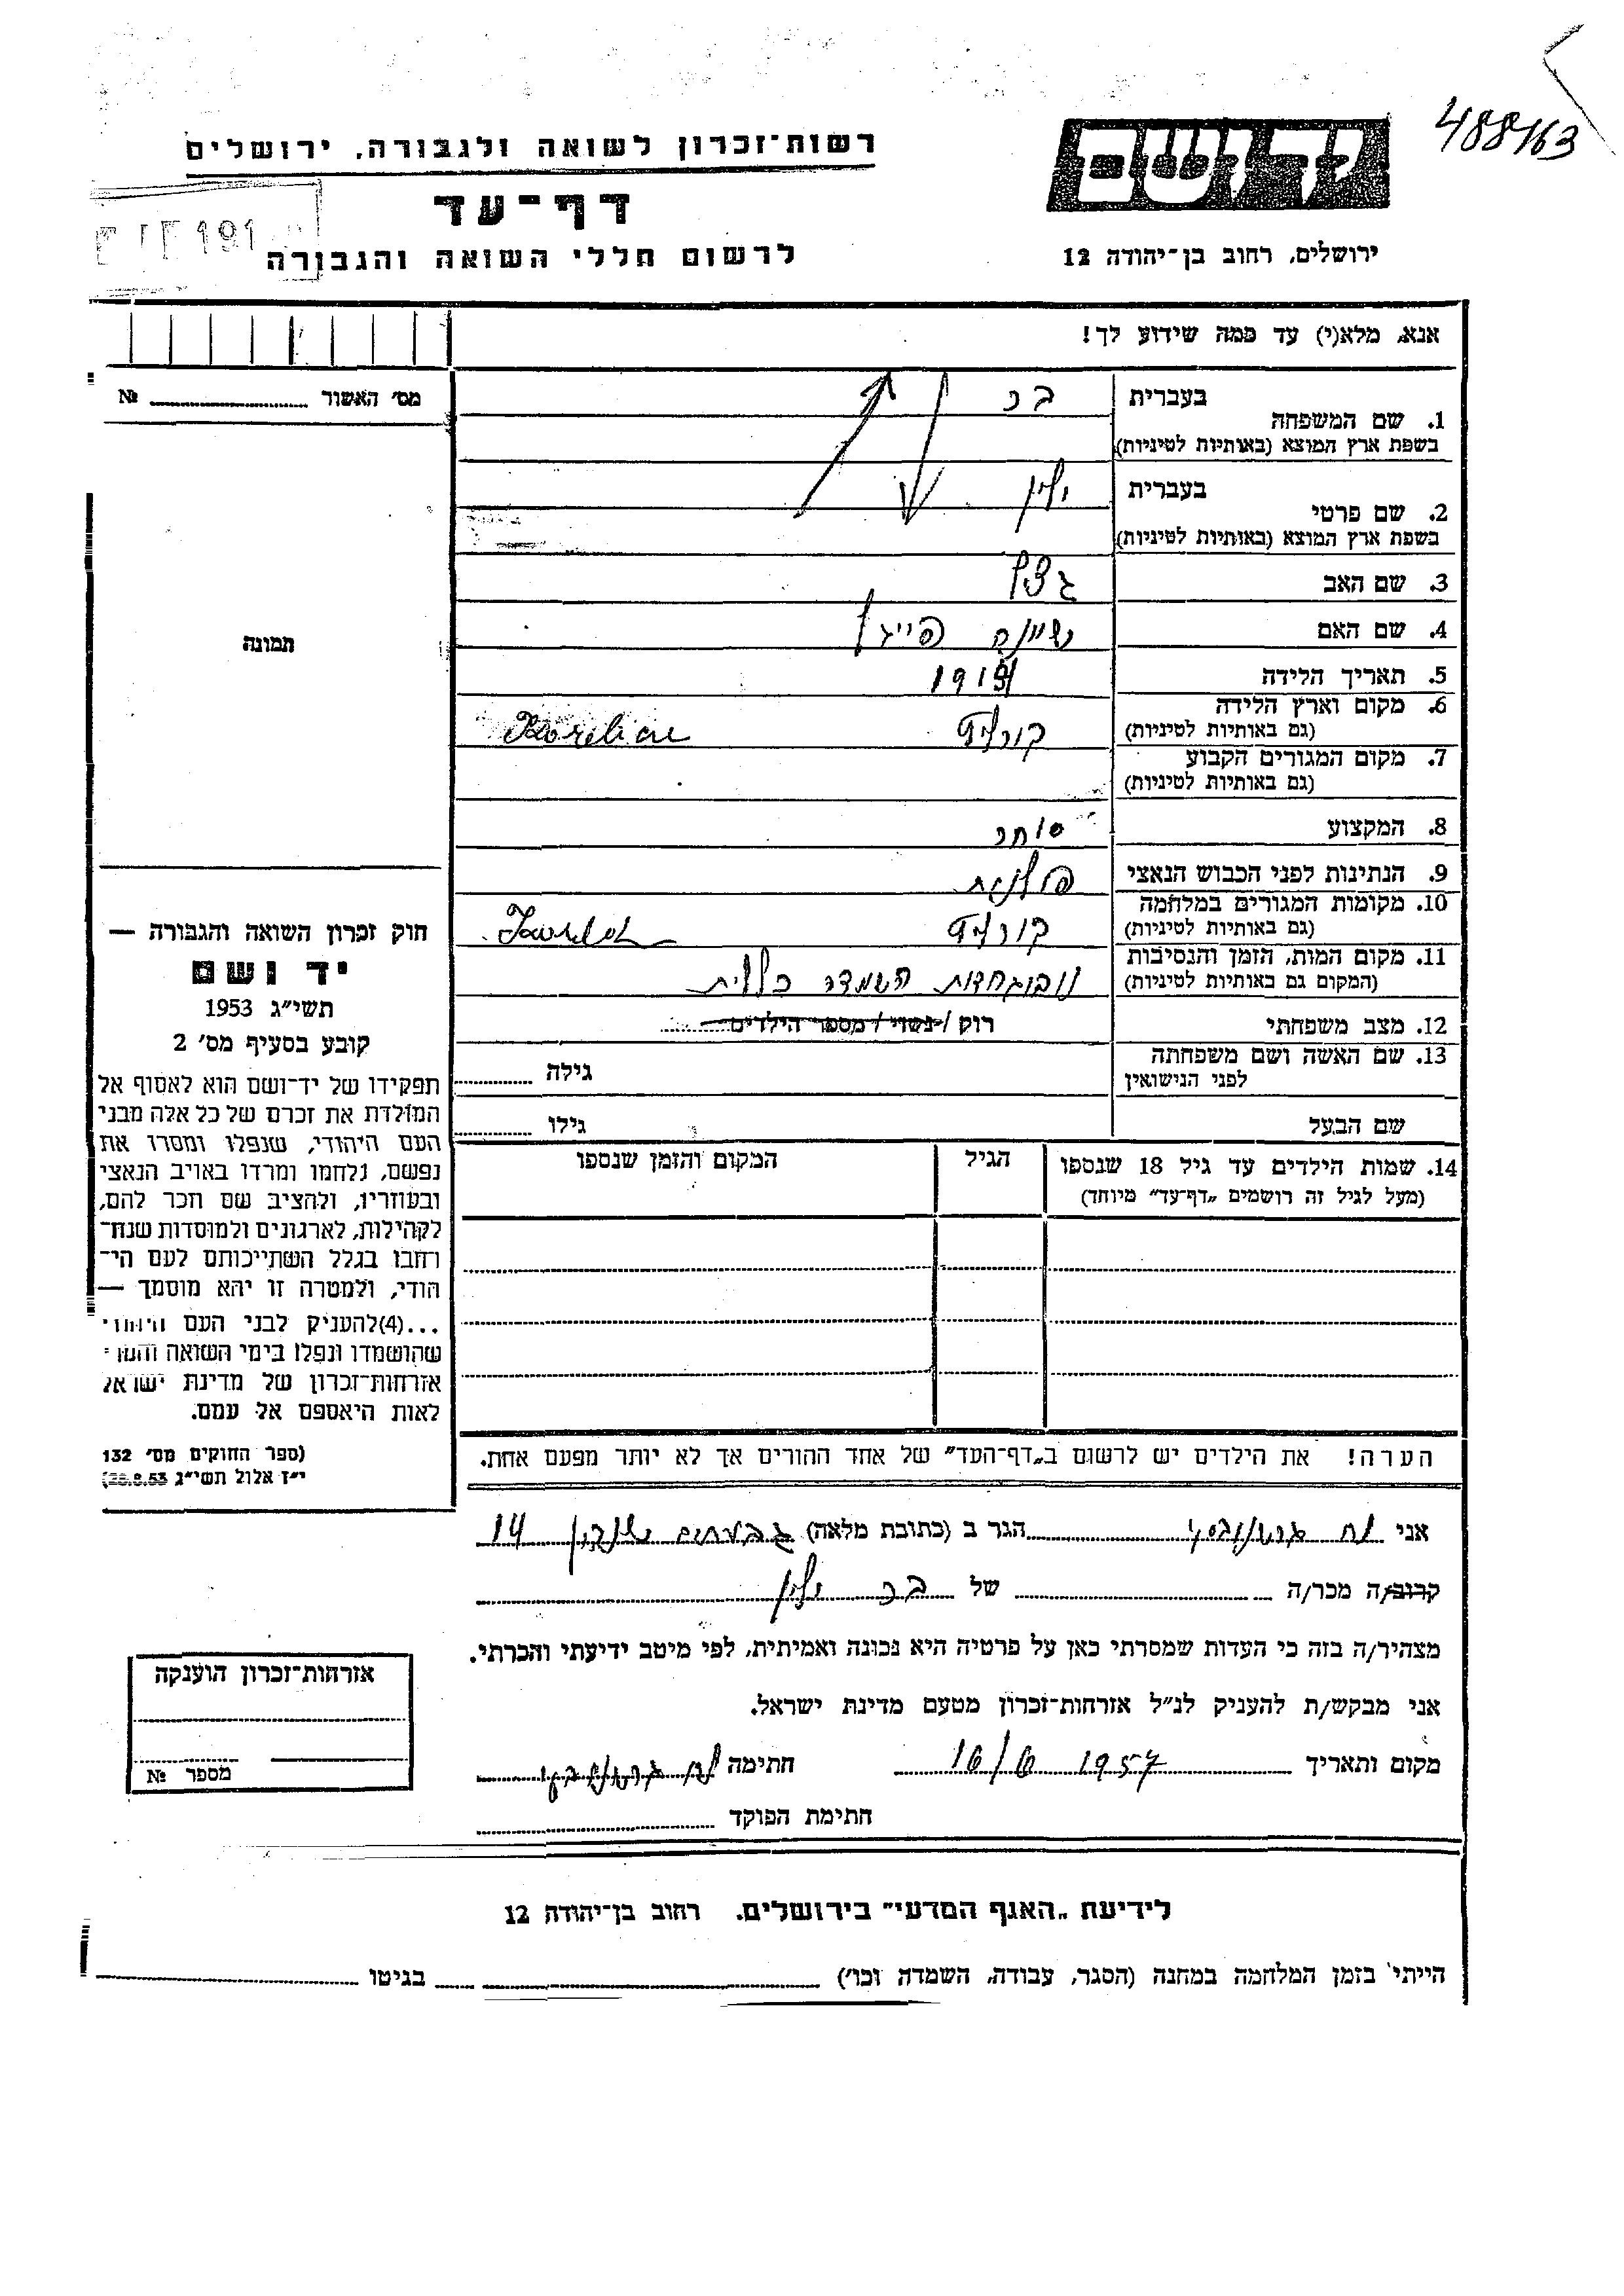 488463
רשות־זכרון לשואה ולגבורה, ירושלים
דף־עד
לרשום חללי השואה והגבורה
יד ושם
ירושלים, רחוב בן־יהודה 12
אנא, מלא(י) עד כמה שידוע לך!
מס׳ האשור №
1. שם המשפחה בעברית בר
בשפת ארץ המוצא (באותיות לטיניות)
2. שם פרטי בעברית
בשפת ארץ המוצא (באותיות לטיניות)
3. שם האב
4. שם האם
5. תאריך הלידה
6. מקום וארץ הלידה
(גם באותיות לטיניות)
7. מקום המגורים הקבוע
(גם באותיות לטיניות)
8. המקצוע סוחר
9. הנתינות לפני הכבוש הנאצי פולנית
10. מקומות המגורים במלחמה
(גם באותיות לטיניות)
11. מקום המות, הזמן והנסיבות
(המקום גם באותיות לטיניות) השמדה כללית
12. מצב משפחתי רוק / נשוי / מספר הילדים
13. שם האשה ושם משפחתה גילה
לפני הנישואין
שם הבעל גילו
14. שמות הילדים עד גיל 18 שנספו הגיל המקום והזמן שנספו
(מעל לגיל זה רושמים „דף־עד״ מיוחד)
הערה! את הילדים יש לרשום ב„דף־העד״ של אחד ההורים אך לא יותר מפעם אחת.
תמונה
חוק זכרון השואה והגבורה —
יד ושם
תשי״ג 1953
קובע בסעיף מס׳ 2
תפקידו של יד־ושם הוא לאסוף אל
המולדת את זכרם של כל אלה מבני
העם היהודי, שנפלו ומסרו את
נפשם, נלחמו ומרדו באויב הנאצי
ובעוזריו, ולהציב שם וזכר להם,
לקהילות, לארגונים ולמוסדות שנח־
רבו בגלל השתייכותם לעם הי־
הודי, ולמטרה זו יהא מוסמך —
...(4)להעניק לבני העם היהודי
שהושמדו ונפלו בימי השואה והמרי
אזרחות־זכרון של מדינת ישראל
לאות היאספם אל עמם.
(ספר החוקים מס׳ 132
י״ז אלול תשי״ג 28.8.53)
אני הגר ב (כתובת מלאה) 14
קרוב/ה מכר/ה של בר
מצהיר/ה בזה כי העדות שמסרתי כאן על פרטיה היא נכונה ואמיתית, לפי מיטב ידיעתי והכרתי.
אני מבקש/ת להעניק לנ״ל אזרחות־זכרון מטעם מדינת ישראל.
מקום ותאריך 16/6 1957 חתימה
חתימת הפוקד
אזרחות־זכרון הוענקה
מספר №
לידיעת „האגף המדעי״ בירושלים. רחוב בן־יהודה 12
הייתי בזמן המלחמה במחנה (הסגר, עבודה, השמדה וכו׳) בגיטו